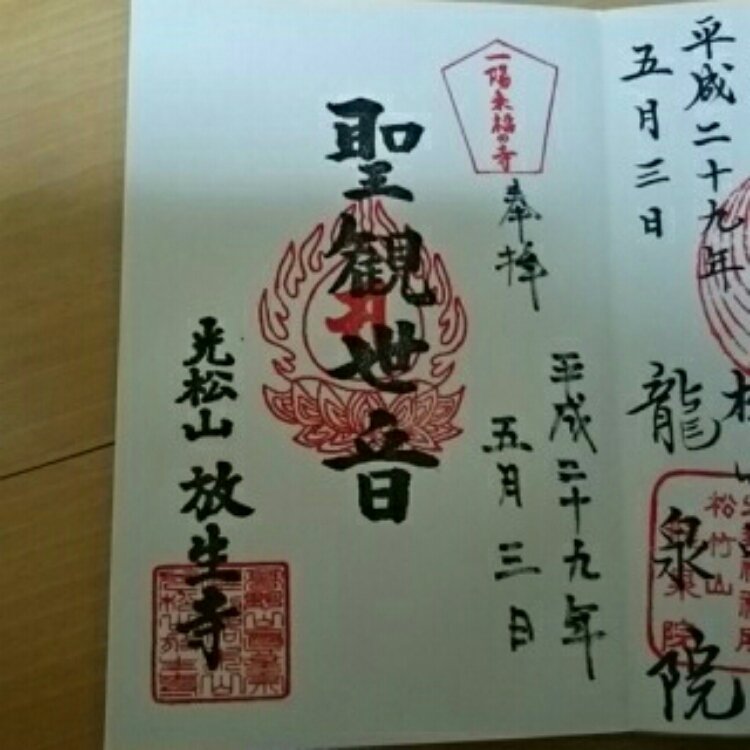 平成二十九年
五月三日
龍泉院
松竹山
一陽来福の寺
奉拝
平成二十九年
五月三日
聖観世音
光松山放生寺